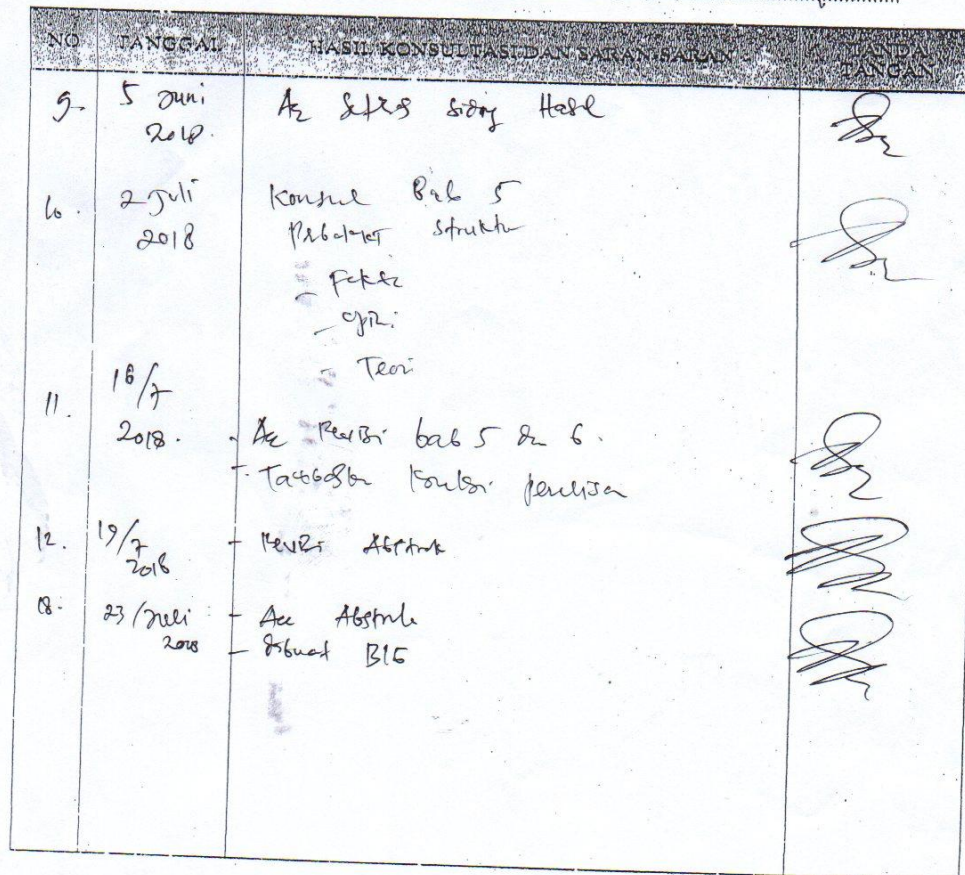 NO TANGGAL HASIL KONSULTASI DAN SARAN-SARAN TANDA TANGAN
9. 5 Juni 2018. Acc sidang Hasil
10. 2 Juli 2018 Konsul Bab 5
struktur
- Fakta
- Opini
- Teori
11. 16/7 2018. - Acc Revisi bab 5 dan 6.
- penulisan
12. 19/7 2018 - Revisi Abstrak
23/Juli 2018 - Acc Abstrak
- dibuat